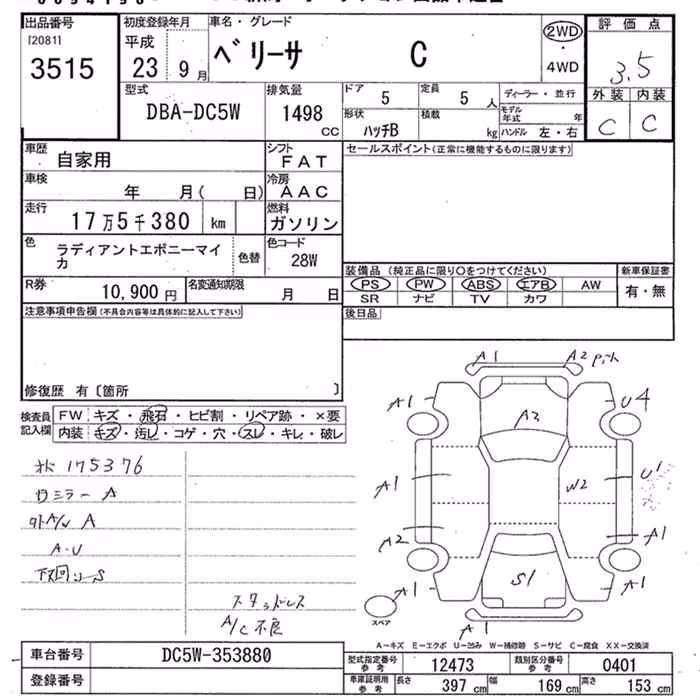 出品番号 初度登録年月 車名・グレード 評価点
120811
3515
平成
23 9月
ベリーサ C
2WD
4WD
3.5
外装 内装
C C
型式 排気量 ドア 定員 ディーラー・並行
DBA-DC5W 1498 cc 5 5 人
形状 積載 モデル年式 年
ハッチB kg ハンドル 左・右
車歴 自家用 シフト FAT
セールスポイント(正常に機能するものに限ります)
車検 年 月( 日) 冷房 AAC
走行 17万5千380 km 燃料 ガソリン
色 ラディアントエボニーマイカ 色替 色コード 28W
装備品 (純正品に限り○をつけてください) 新車保証書
PS PW ABS エアB AW 有・無
SR ナビ TV カワ
R券 10,900円 名変通知期限 月 日
後日品
注意事項申告欄(不具合内容等は具体的に記入して下さい)
修復歴 有〔箇所 〕
検査員記入欄
FW キズ・飛石・ヒビ割・リペア跡・×要
内装 キズ・汚レ・コゲ・穴・スレ・キレ・破レ
175376
ミラー A
A
A・U
下回り S
スタッドレス
A/C不良
A1 A2
A1 U4
A3
A1 W2 U1
A2 A1
A1 S1 A1
スペア A1
A−キズ E−エクボ U−凹み W−補修跡 S−サビ C−腐食 XX−交換済
車台番号 DC5W-353880
登録番号
型式指定番号参考 12473 類別区分番号参考 0401
車庫証明用参考 長さ 397 cm 幅 169 cm 高さ 153 cm